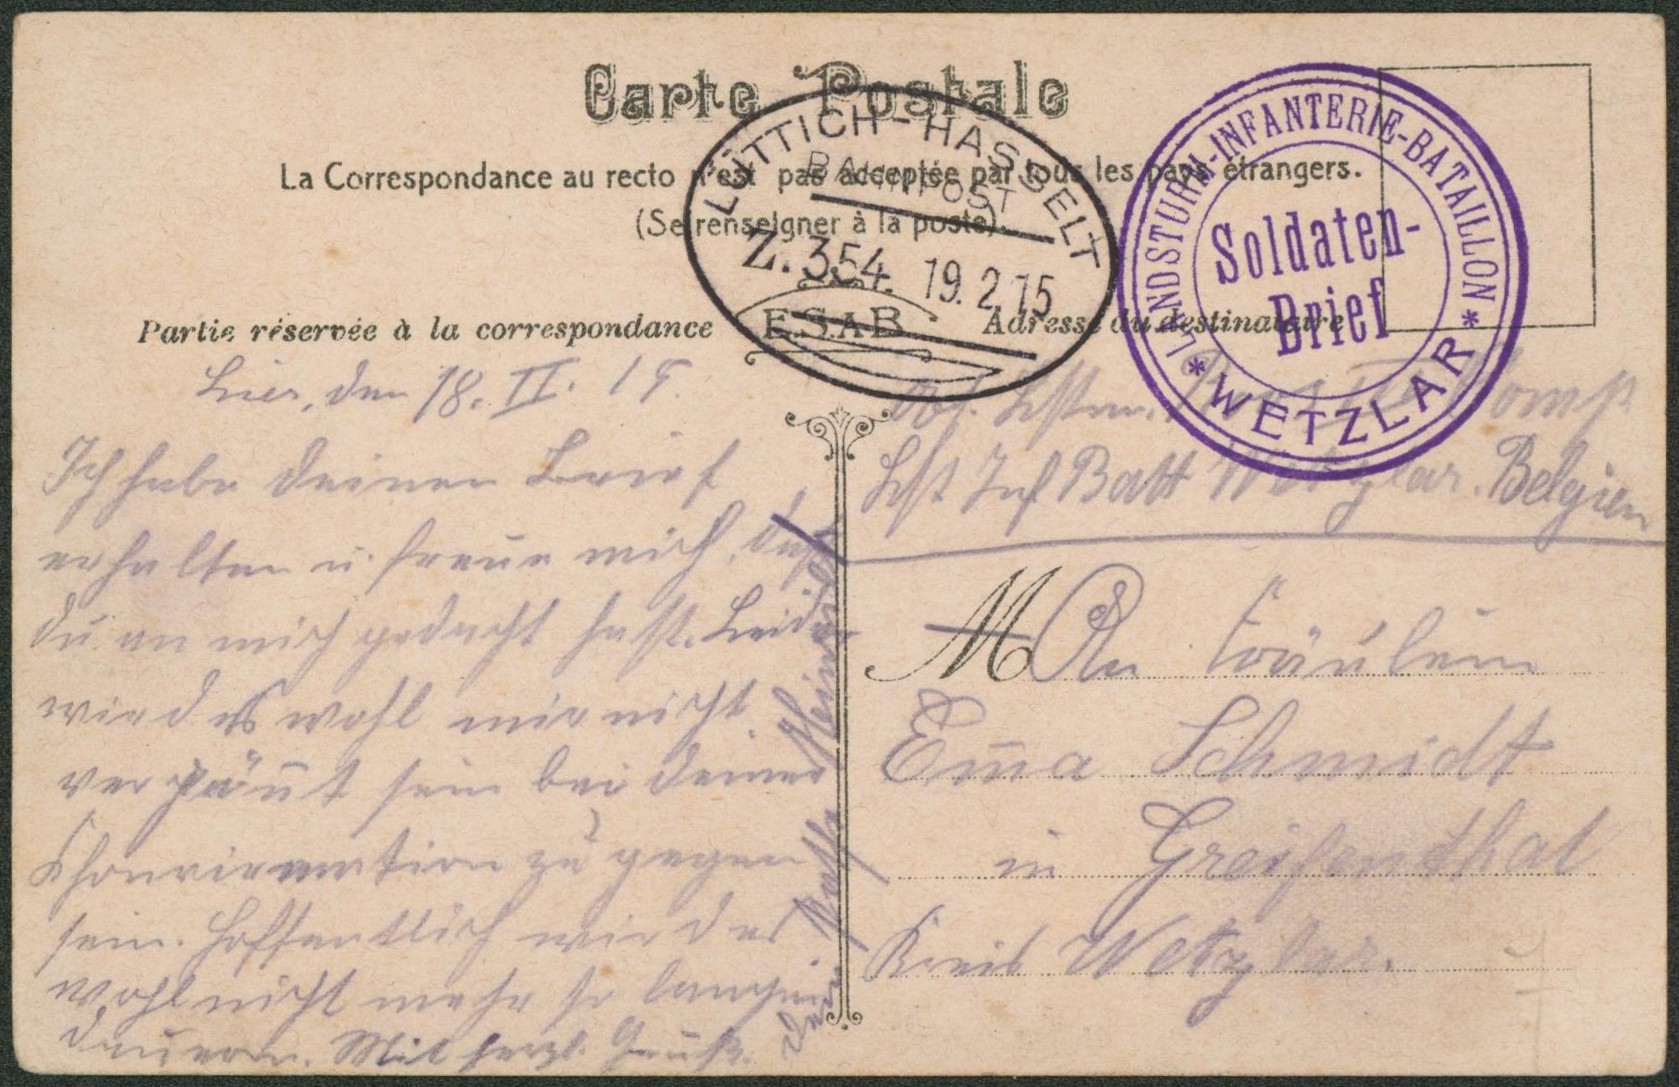 Carte Postale
La Correspondance au recto n'est pas acceptée par tous les pays étrangers.
(Se renseigner à la poste).
LÜTTICH-HASSELT
BAHNPOST
Z. 354 19.2.15
E.S.A.B.
LANDSTURM-INFANTERIE-BATAILLON
* WETZLAR *
Soldaten-
Brief
Partie réservée à la correspondance
Adresse du destinataire
Lier, den 18. II. 15.
Ich habe deinen Brief
erhalten u. freue mich, daß
du an mich gedacht hast. Leider
wird es wohl mir nicht
vergönnt sein bei deiner
zu gegen
sein. Hoffentlich wird es
wohl nicht mehr so lange
dauern. Mit herzl. Gruß.
Dein Pathe
Abs. Lstm. Komp
Lst Inf Batt Wetzlar. Belgien
M An Fräulein
Ema Schmidt
in Greifenthal
Kreis Wetzlar.